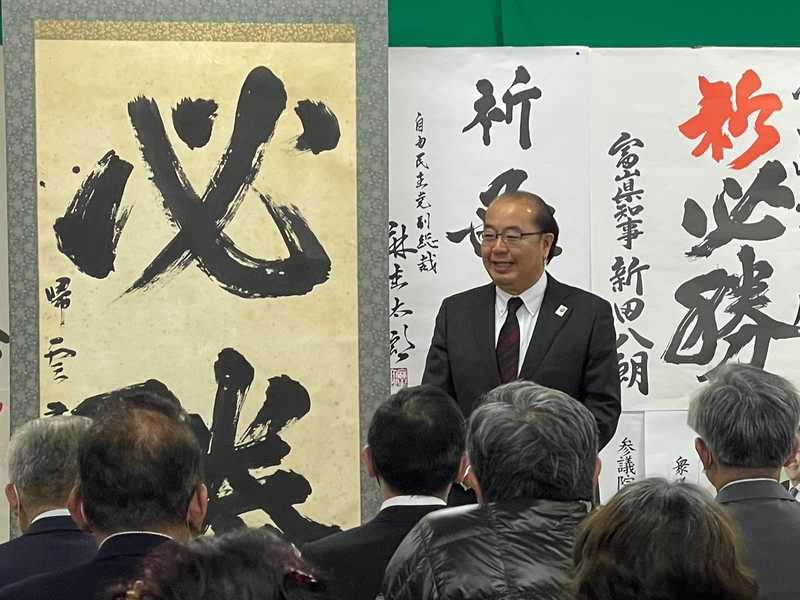 必勝
帰雲
祈
自由民主党副総裁
麻生太郎
祈必勝
富山県知事 新田八朗
参議院
衆